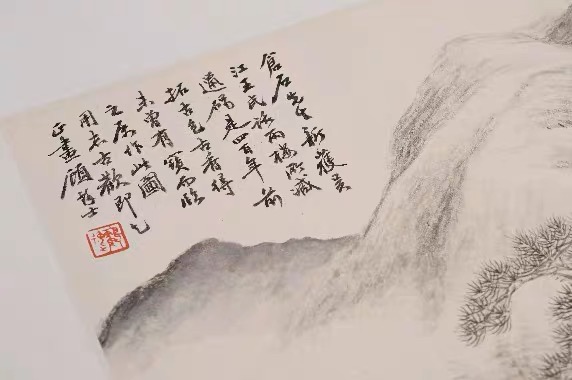 倉石先生新獲吳
江王氏話雨樓所藏
是四百年前
拓古色古香得
未曾有寶而臨
之屬作此圖
用志古歡即乞
正畫顧士